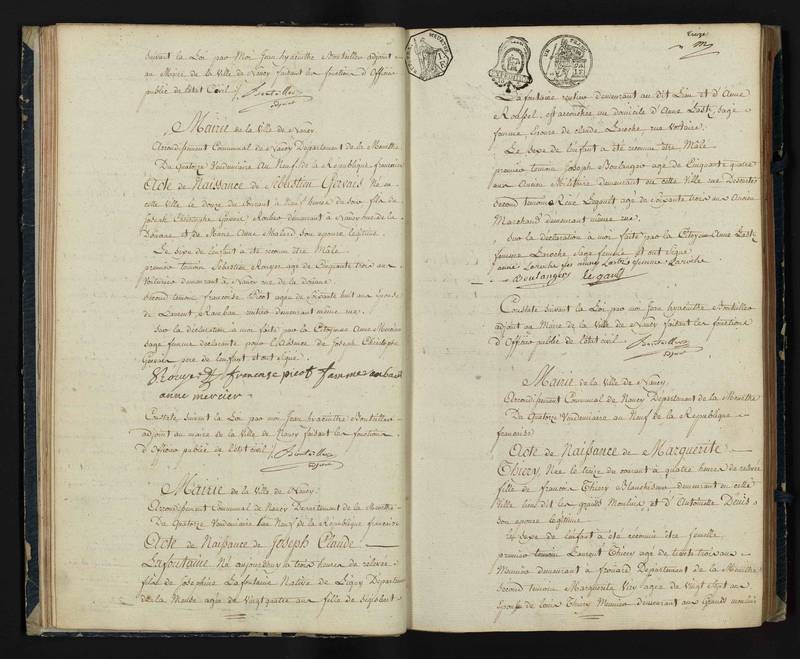 suivant la Loi par Moi Jean hyacinthe Boutteiller adjoint
au Maire de la Ville de Nancy faisant les fonction d'Officier
public de l'état Civil
Mairie de la Ville de Nancy
Arrondissement Communal de Nancy Département de la Meurthe
Du Quatorze Vendemiaire An Neuf de la République française
Acte de Naissance de Sébastien Gervais Né en
cette Ville le douze du Courant à Neuf heures du soir fils de
Joseph Christophe Gervais demeurant à Nancy rue de la
Douane et de Marie Anne son épouse légitime
Le Sexe de l'enfant a été reconnu être Mâle
premier témoin Sébastien Rouyer age de Cinquante trois ans
Voiturier demeurant à Nancy rue de la douane
second témoin françoise Picot agée de soixante huit ans épouse
de Laurent Rambau rentier demeurant même rue
Sur la déclaration à moi faite par la Citoyenne Anne Mercier
sage femme déclarante pour l'absence de Joseph Christophe
Gervais père de l'enfant et ont signé
Rouyer francoise picot famme anbau
anne mercier
Constaté suivant la Loi par moi Jean hyacinthe Boutteiller
adjoint au maire de la Ville de Nancy faisant les fonctions
d'Officier public de l'état civil
Mairie de la Ville de Nancy
Arrondissement Communal de Nancy Département de la Meurthe
Du Quatorze Vendemiaire an Neuf de la République française
Acte de Naissance de Joseph Claude
Lafontaine Né aujourdhuy à trois heures de relevée
fils de Lafontaine Native de Ligny Département
de la Meuse agée de Vingt quatre ans fille de
Lafontaine rentier demeurant au dit Lieu et d'Anne
Roussel, est accouchée au domicile d'Anne Lasti sage
femme épouse de Claude Laroche, rue Voltaire
Le Sexe de l'enfant a été reconnu être Mâle
premier témoin Joseph Boulanger agé de Cinquante quatre
ans Ancien Militaire demeurant en cette Ville rue
second témoin René Legault agé de soixante trois ans Ancien
Marchand demeurant même rue
Sur la déclaration à moi faite par la Citoyenne Anne Lasti
femme Laroche Sage femme et ont Signé
anne femme Laroche
Boulanger legault
Constaté suivant la Loi par moi Jean hyacinthe Boutteiller
adjoint au Maire de la Ville de Nancy faisant les fonctions
d'Officier public de l'état civil
Mairie de la Ville de Nancy
Arrondissement Communal de Nancy Département de la Meurthe
Du Quatorze Vendemiaire an Neuf de la République
française
Acte de Naissance de Marguerite
Thiery, Née le treize du courant à quatre heures de relevée
fille de françois Thiery Blanchisseur demeurant en cette
Ville lieu dit les grands Moulins et d'Antoinette Denis
son épouse légitime
Le sexe de l'enfant a été reconnu être femelle
premier témoin Laurent Thiery agé de trente trois ans
Meunier demeurant à frouard Département de la Meurthe
second témoin Marguerite agée de Vingt Sept ans
épouse de Louis Thiery Meunier demeurant aux Grands moulins